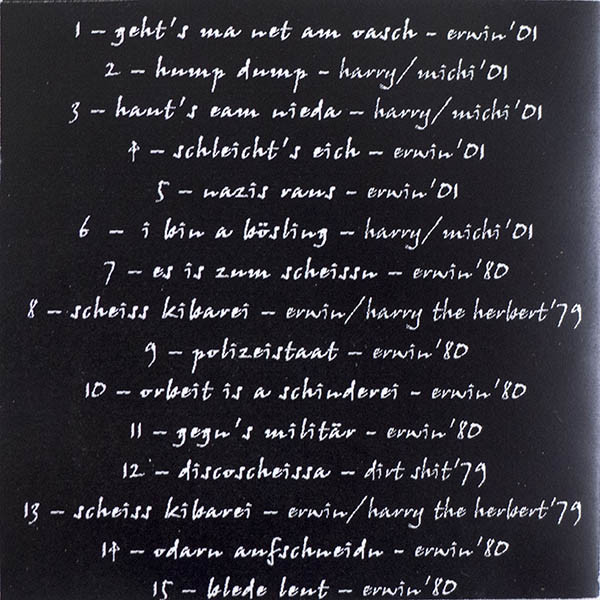 1 – geht's ma net am oasch – erwin'01
2 – hump dump – harry/michi'01
3 – haut's eam nieda – harry/michi'01
4 – schleicht's eich – erwin'01
5 – nazis raus – erwin'01
6 – i bin a bösling – harry/michi'01
7 – es is zum scheissn – erwin'80
8 – scheiss kibarei – erwin/harry the herbert'79
9 – polizeistaat – erwin'80
10 – orbeit is a schinderei – erwin'80
11 – gegn's militär – erwin'80
12 – discoscheissa – dirt shit'79
13 – scheiss kibarei – erwin/harry the herbert'79
14 – odarn aufschneidn – erwin'80
15 – blede leut – erwin'80